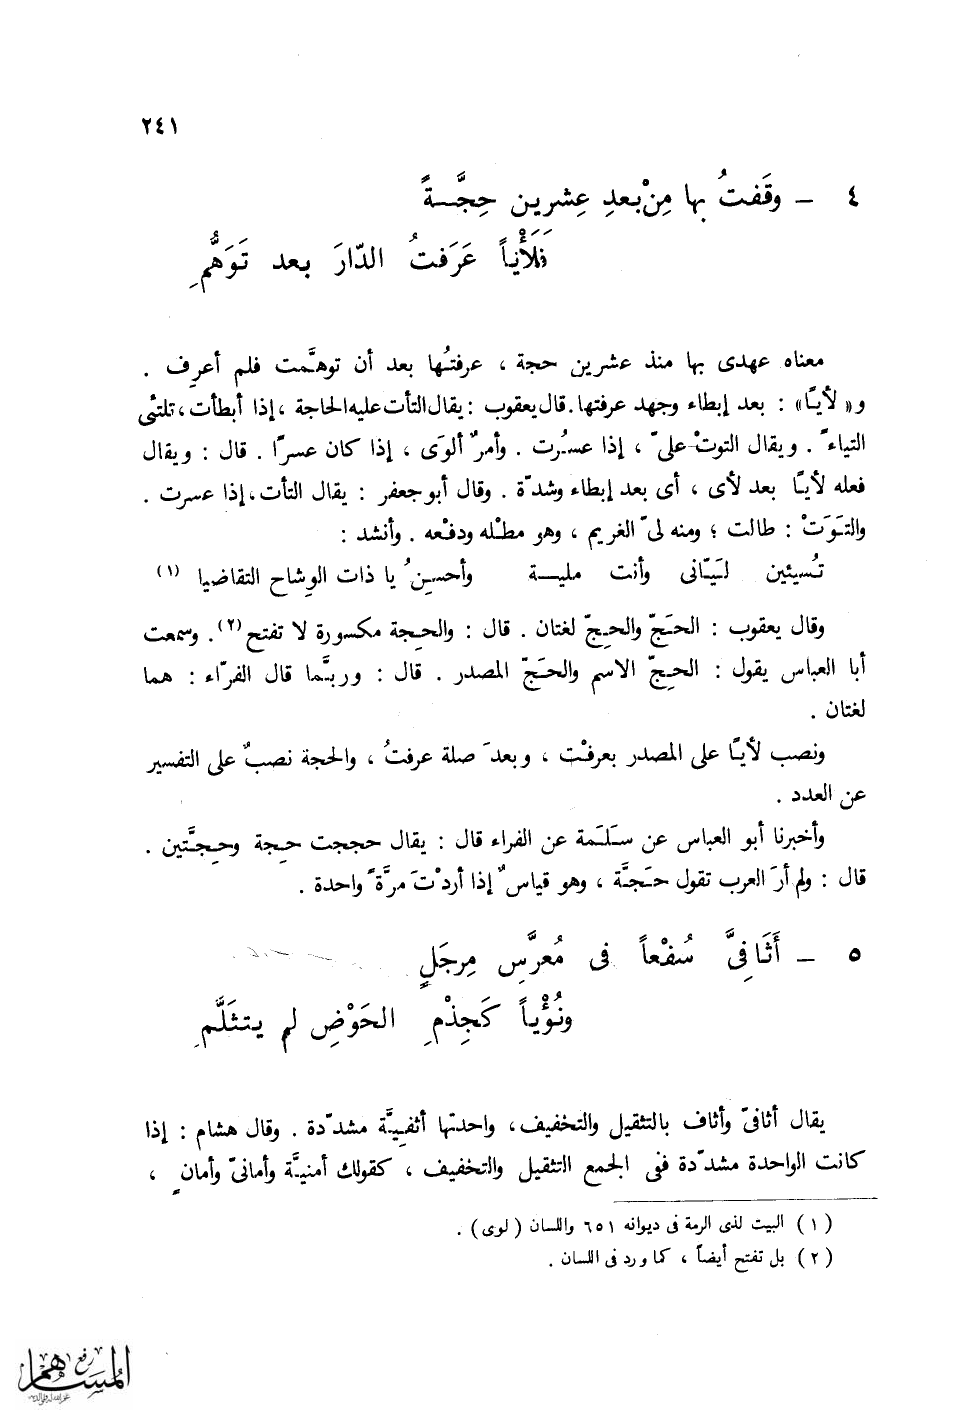 ٢٤١
٤ — وقَفتُ بها مِنْ بعدِ عِشرين حِجَّــةً
فَلَأْياً عَرَفتُ الدّارَ بعد تَوَهُّمِ
معناه عهدى بها منذ عشرين حجة ، عرفتُها بعد أن توهَّمت فلم أعرِف .
و« لأيًا » : بعد إبطاء وجهد عرفتها . قال يعقوب : يقال التأت عليه الحاجة ، إذا أبطأت ، تلتئى
التياءً . ويقال التوتْ علىّ ، إذا عسُرت . وأمرٌ ألوَى ، إذا كان عسرًا . قال : ويقال
فعله لأيًا بعد لأى ، أى بعد إبطاء وشدّة . وقال أبو جعفر : يقال التأت ، إذا عسرت .
والتَوَتْ : طالت ؛ ومنه لىّ الغريم ، وهو مطْله ودفْعه . وأنشد :
تُسيئين لَيّانى وأنت مليــة وأحسِنُ يا ذات الوِشاح التقاضيا (١)
وقال يعقوب : الحَجّ والحِجّ لغتان . قال : والحِجة مكسورة لا تفتح (٢) . وسمعت
أبا العباس يقول : الحِجّ الاسم والحَجّ المصدر . قال : وربَّما قال الفرّاء : هما
لغتان .
ونصب لأيًا على المصدر بعرفْت ، وبعدَ صلة عرفتُ ، والحجة نصبٌ على التفسير
عن العدد .
وأخبرنا أبو العباس عن سَلَمة عن الفراء قال : يقال حججت حِجة وحِجَّتين .
قال : ولم أرَ العرب تقول حَجَّة ، وهو قياسٌ إذا أردْتَ مرَّةً واحدة .
٥ — أَثَافِىَّ سُفْعاً فى مُعرَّسِ مِرجَلٍ
ونُؤْياً كَجِذْمِ الحَوْضِ لم يتثَلَّمِ
يقال أثافىّ وأثاف بالتثقيل والتخفيف ، واحدتها أثفِيَّة مشدّدة . وقال هشام : إذا
كانت الواحدة مشدّدة ففى الجمع التثقيل والتخفيف ، كقولك أمنيَّة وأمانىّ وأمانٍ ،
( ١ ) البيت لذى الرمة فى ديوانه ٦٥١ واللسان ( لوى ) .
( ٢ ) بل تفتح أيضاً ، كما ورد فى اللسان .